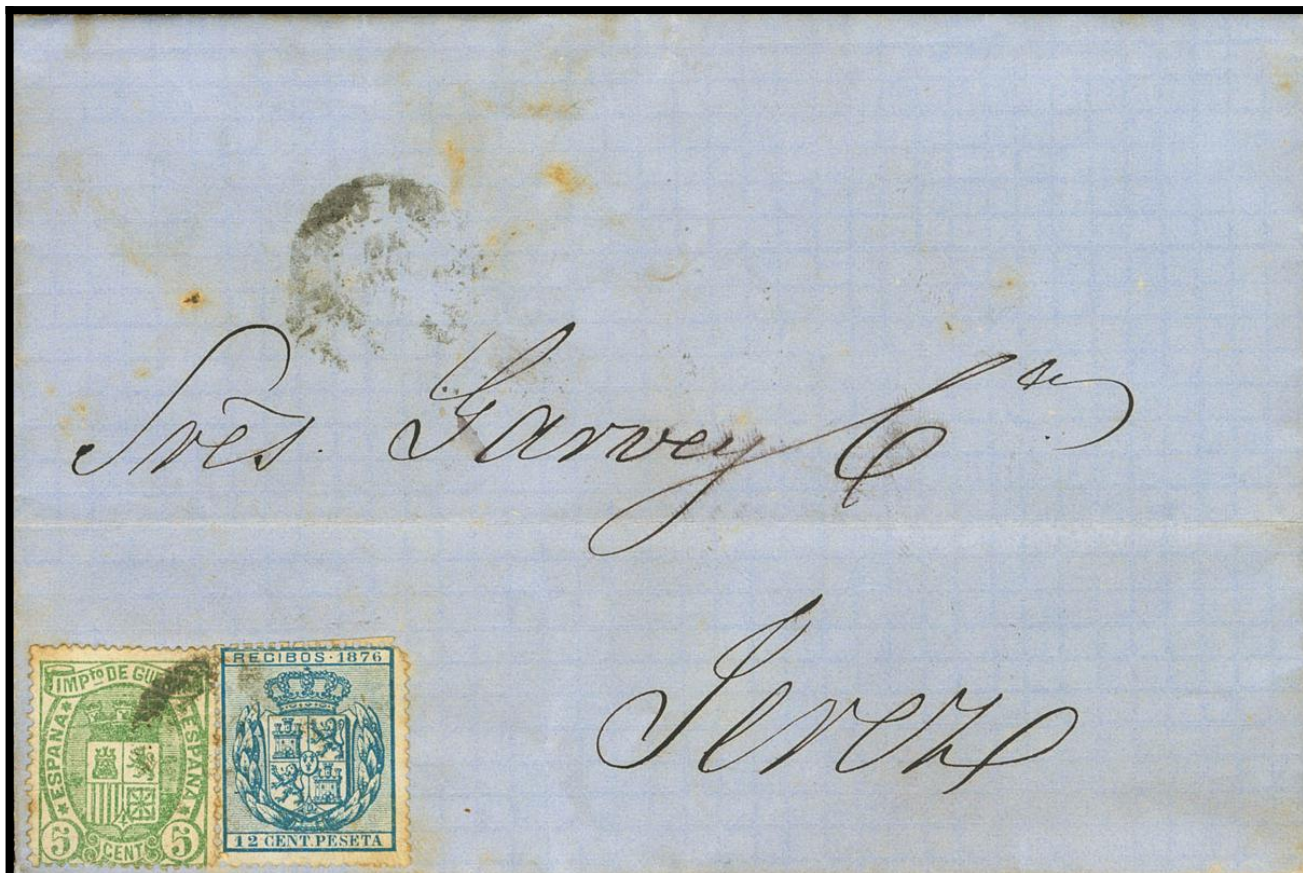 Srẽs. Garvey Cª
Jerez
IMPto DE GU
ESPAÑA
ESPAÑA
5 CENT. 5
RECIBOS · 1876
12 CENT. PESETA